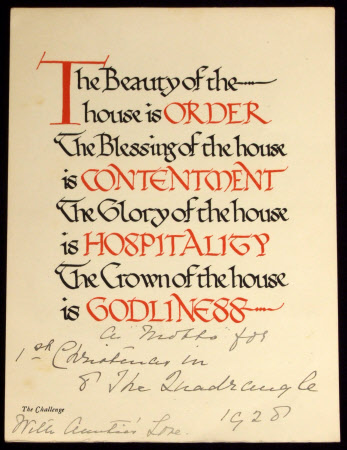 The Beauty of the
house is ORDER
The Blessing of the house
is CONTENTMENT
The Glory of the house
is HOSPITALITY
The Crown of the house
is GODLINESS
as Motto for
1st Christmas in
8 The Quadrangle
1928
The Challenge
With Auntie's Love.